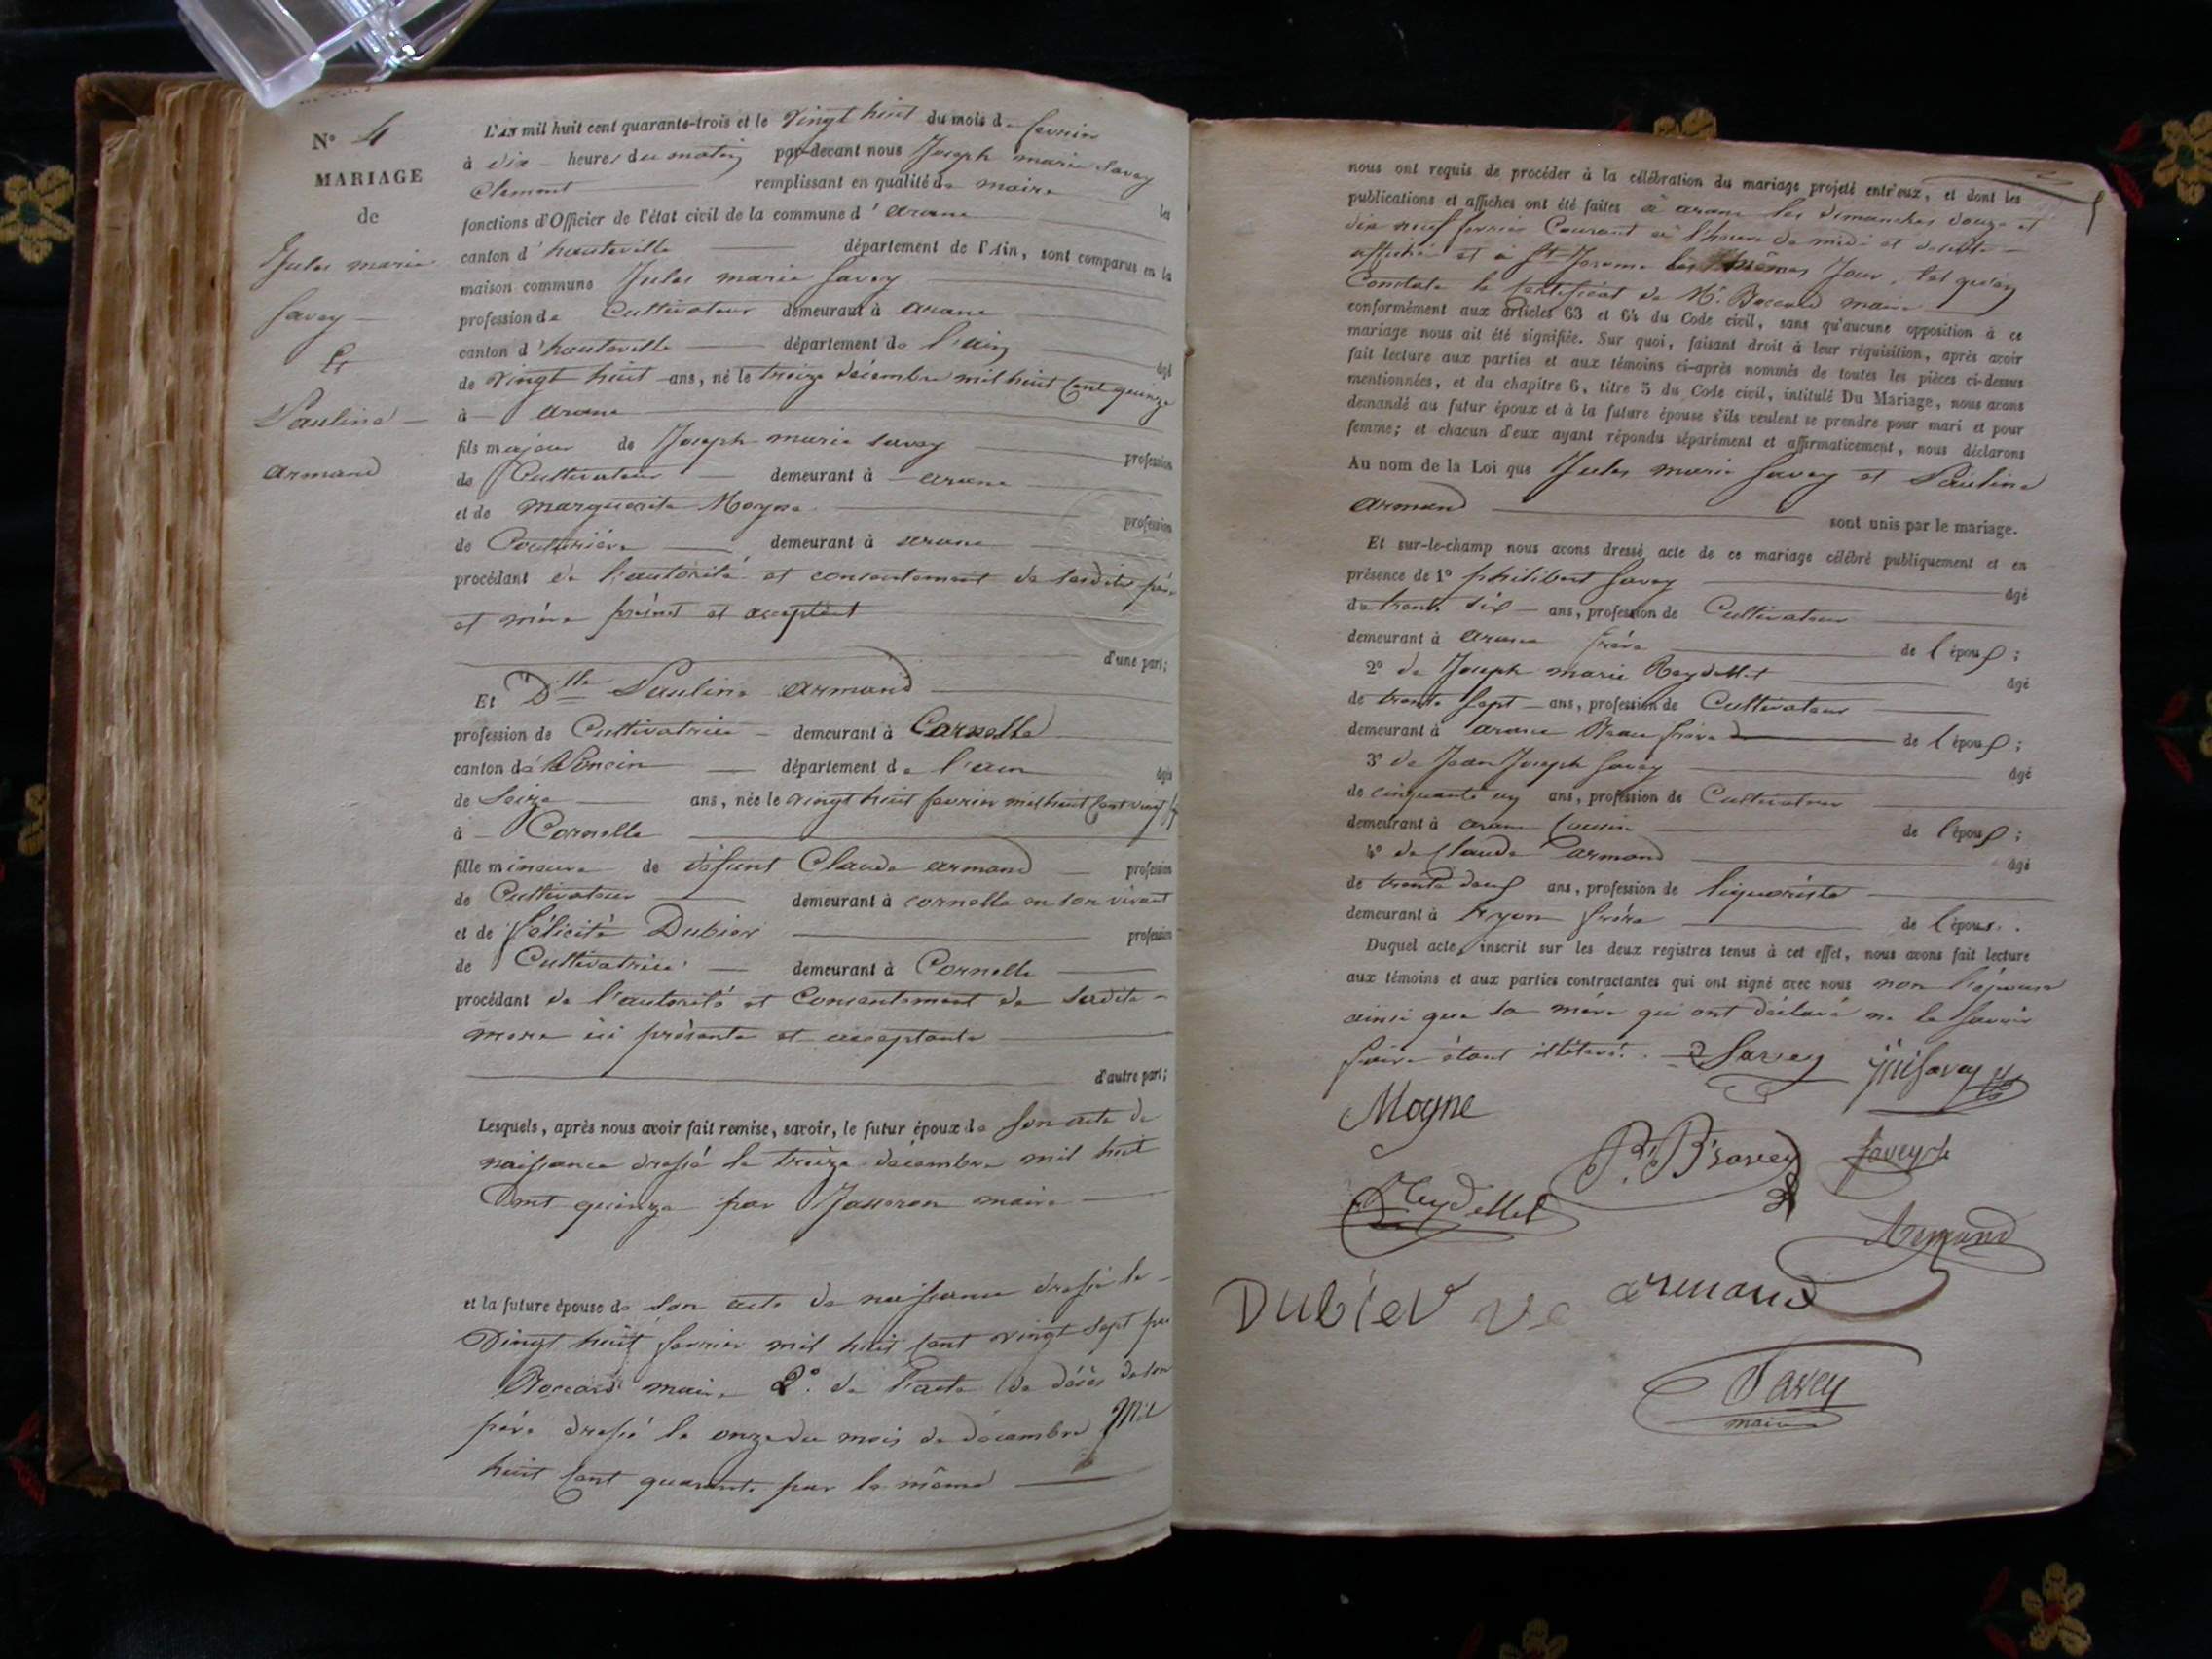 N° 4
MARIAGE
de
Jules marie
Savey
Et
Pauline
armand
L'AN mil huit cent quarante-trois et le vingt huit du mois de fevrier
à dix heures du matin par-devant nous Joseph marie Savey
Clement remplissant en qualité de maire les
fonctions d'Officier de l'état civil de la commune d'arane
canton d'hauteville département de l'Ain, sont comparus en la
maison commune Jules marie Savey
profession de Cultivateur demeurant à arane
canton d'hauteville département de l'ain âgé
de vingt huit ans, né le treize décembre mil huit cent quinze
à arane
fils majeur de Joseph marie savey profession
de Cultivateur demeurant à arane
et de marguerite Mogne profession
de Couturière demeurant à arane
procédant de l'autorité et consentement de sesdits père
et mère présent et acceptant
d'une part;
Et Dlle Pauline armand
profession de Cultivatrice demeurant à Cornelle
canton de Poncin département de l'ain âgée
de Seize ans, née le vingt huit fevrier mil huit cent vingt sept
à Cornelle
fille mineure de défunt Claude armand profession
de Cultivateur demeurant à cornelle en son vivant
et de félicité Dubier profession
de Cultivatrice demeurant à Cornelle
procédant de l'autorité et Consentement de sadite
mere ici présente et acceptante
d'autre part;
Lesquels, après nous avoir fait remise, savoir, le futur époux de son acte de
naissance dressé le treize decembre mil huit
Cent quinze par Jasseron maire
et la future épouse de son acte de naissance dressé le
vingt huit fevrier mil huit cent vingt sept par
Boccard maire 2° de l'acte de décès de son
père dressé le onze du mois de décembre Mil
huit cent quarante par le même
nous ont requis de procéder à la célébration du mariage projeté entr'eux, et dont les
publications et affiches ont été faites à arane les dimanches douze et
dix neuf fevrier Courant à l'heure de midi et
affiché et à St Jerome les mêmes Jour, tel qu'en
Constate le Certificat de Mr. Boccard maire
conformément aux articles 63 et 64 du Code civil, sans qu'aucune opposition à ce
mariage nous ait été signifiée. Sur quoi, faisant droit à leur réquisition, après avoir
fait lecture aux parties et aux témoins ci-après nommés de toutes les pièces ci-dessus
mentionnées, et du chapitre 6, titre 5 du Code civil, intitulé Du Mariage, nous avons
demandé au futur époux et à la future épouse s'ils veulent se prendre pour mari et pour
femme; et chacun d'eux ayant répondu séparément et affirmativement, nous déclarons
Au nom de la Loi que Jules marie Savey et Pauline
armand sont unis par le mariage.
Et sur-le-champ nous avons dressé acte de ce mariage célébré publiquement et en
présence de 1° philibert Savey âgé
de trente six ans, profession de Cultivateur
demeurant à arane frère de l'époux;
2° de Joseph marie Reydellet âgé
de trente sept ans, profession de Cultivateur
demeurant à arane Beau frère de l'époux;
3° de Jean Joseph Savey âgé
de cinquante un ans, profession de Cultivateur
demeurant à arane Cousin de l'époux;
4° de Claude armand âgé
de trente deux ans, profession de liquoriste
demeurant à Lyon frère de l'épouse.
Duquel acte, inscrit sur les deux registres tenus à cet effet, nous avons fait lecture
aux témoins et aux parties contractantes qui ont signé avec nous non l'épouse
ainsi que sa mère qui ont déclaré ne le savoir
faire étant illiteré. Savey Jul Savey
Mogne
P. Bt Savey Savey
Reydellet
Armand
Dubier ve armand
Savey
maire